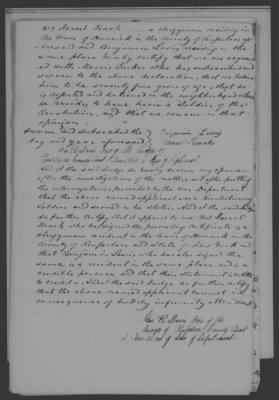 We Israel Keach a clergyman residing in
the town of Hoosick in the county of Rensselaer af-
oresaid and Benjamin Lewis residing in the
same place hereby certify that we are acquaint-
ed with Moses who has subscribed and
sworn to the above declaration, that we believe
him to be seventy four years of age, that he
is reputed and believed in the neighborhood where
he resides to have been a Soldier of the
Revolution, and that we concur in that
opinion.
Sworn and subscribed the Benjamin Lewis
day and year aforesaid Israel Keach
And the said Judge do hereby declare my opinion
after the investigation of the matter, and after putting
the interrogatories prescribed by the War Department
that the above named applicant was a revolutionary
soldier and served as he states, And the said Judge
do further certify that it appears to me that Israel
Keach who has signed the preceding certificate is a
clergyman resident in the town of Hoosick in the
county of Rensselaer and state of New York and
that Benjamin Lewis who has also signed the
same is a resident in the same place and is a
credible person and that their statement is entitled
to credit. And the said Judge do further certify
that the above named applicant cannot
in consequence of bodily infirmity attend
Judge of Rensselaer County Court